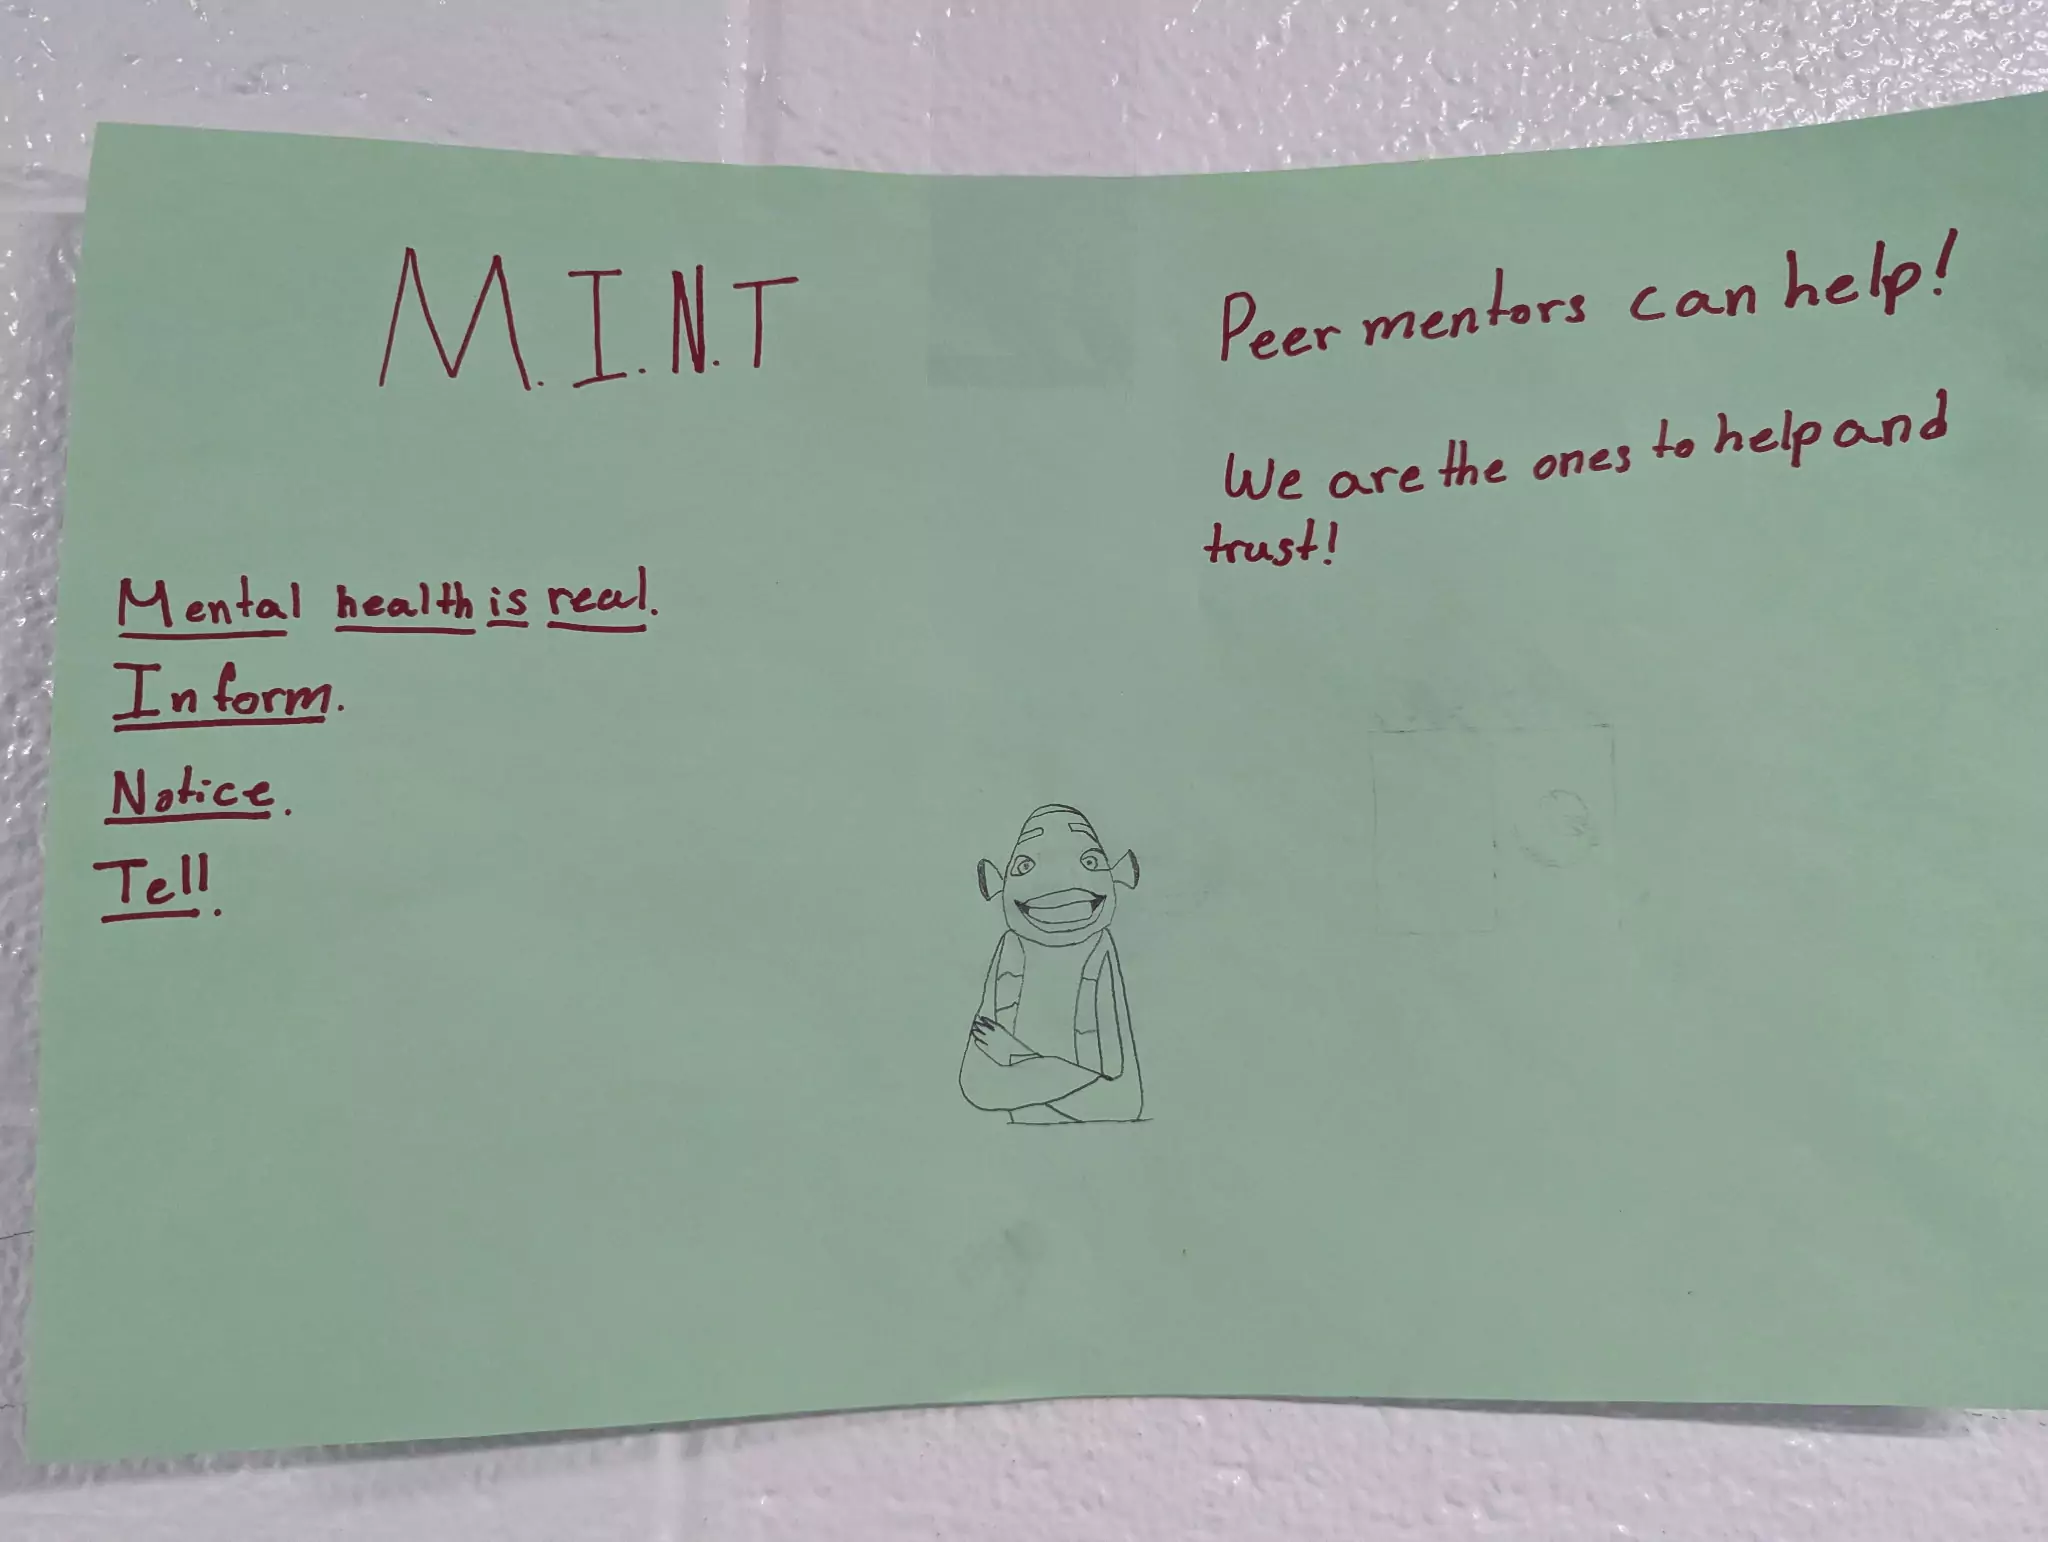 M.I.N.T
Mental health is real.
Inform.
Notice.
Tell.
Peer mentors can help!
We are the ones to help and
trust!